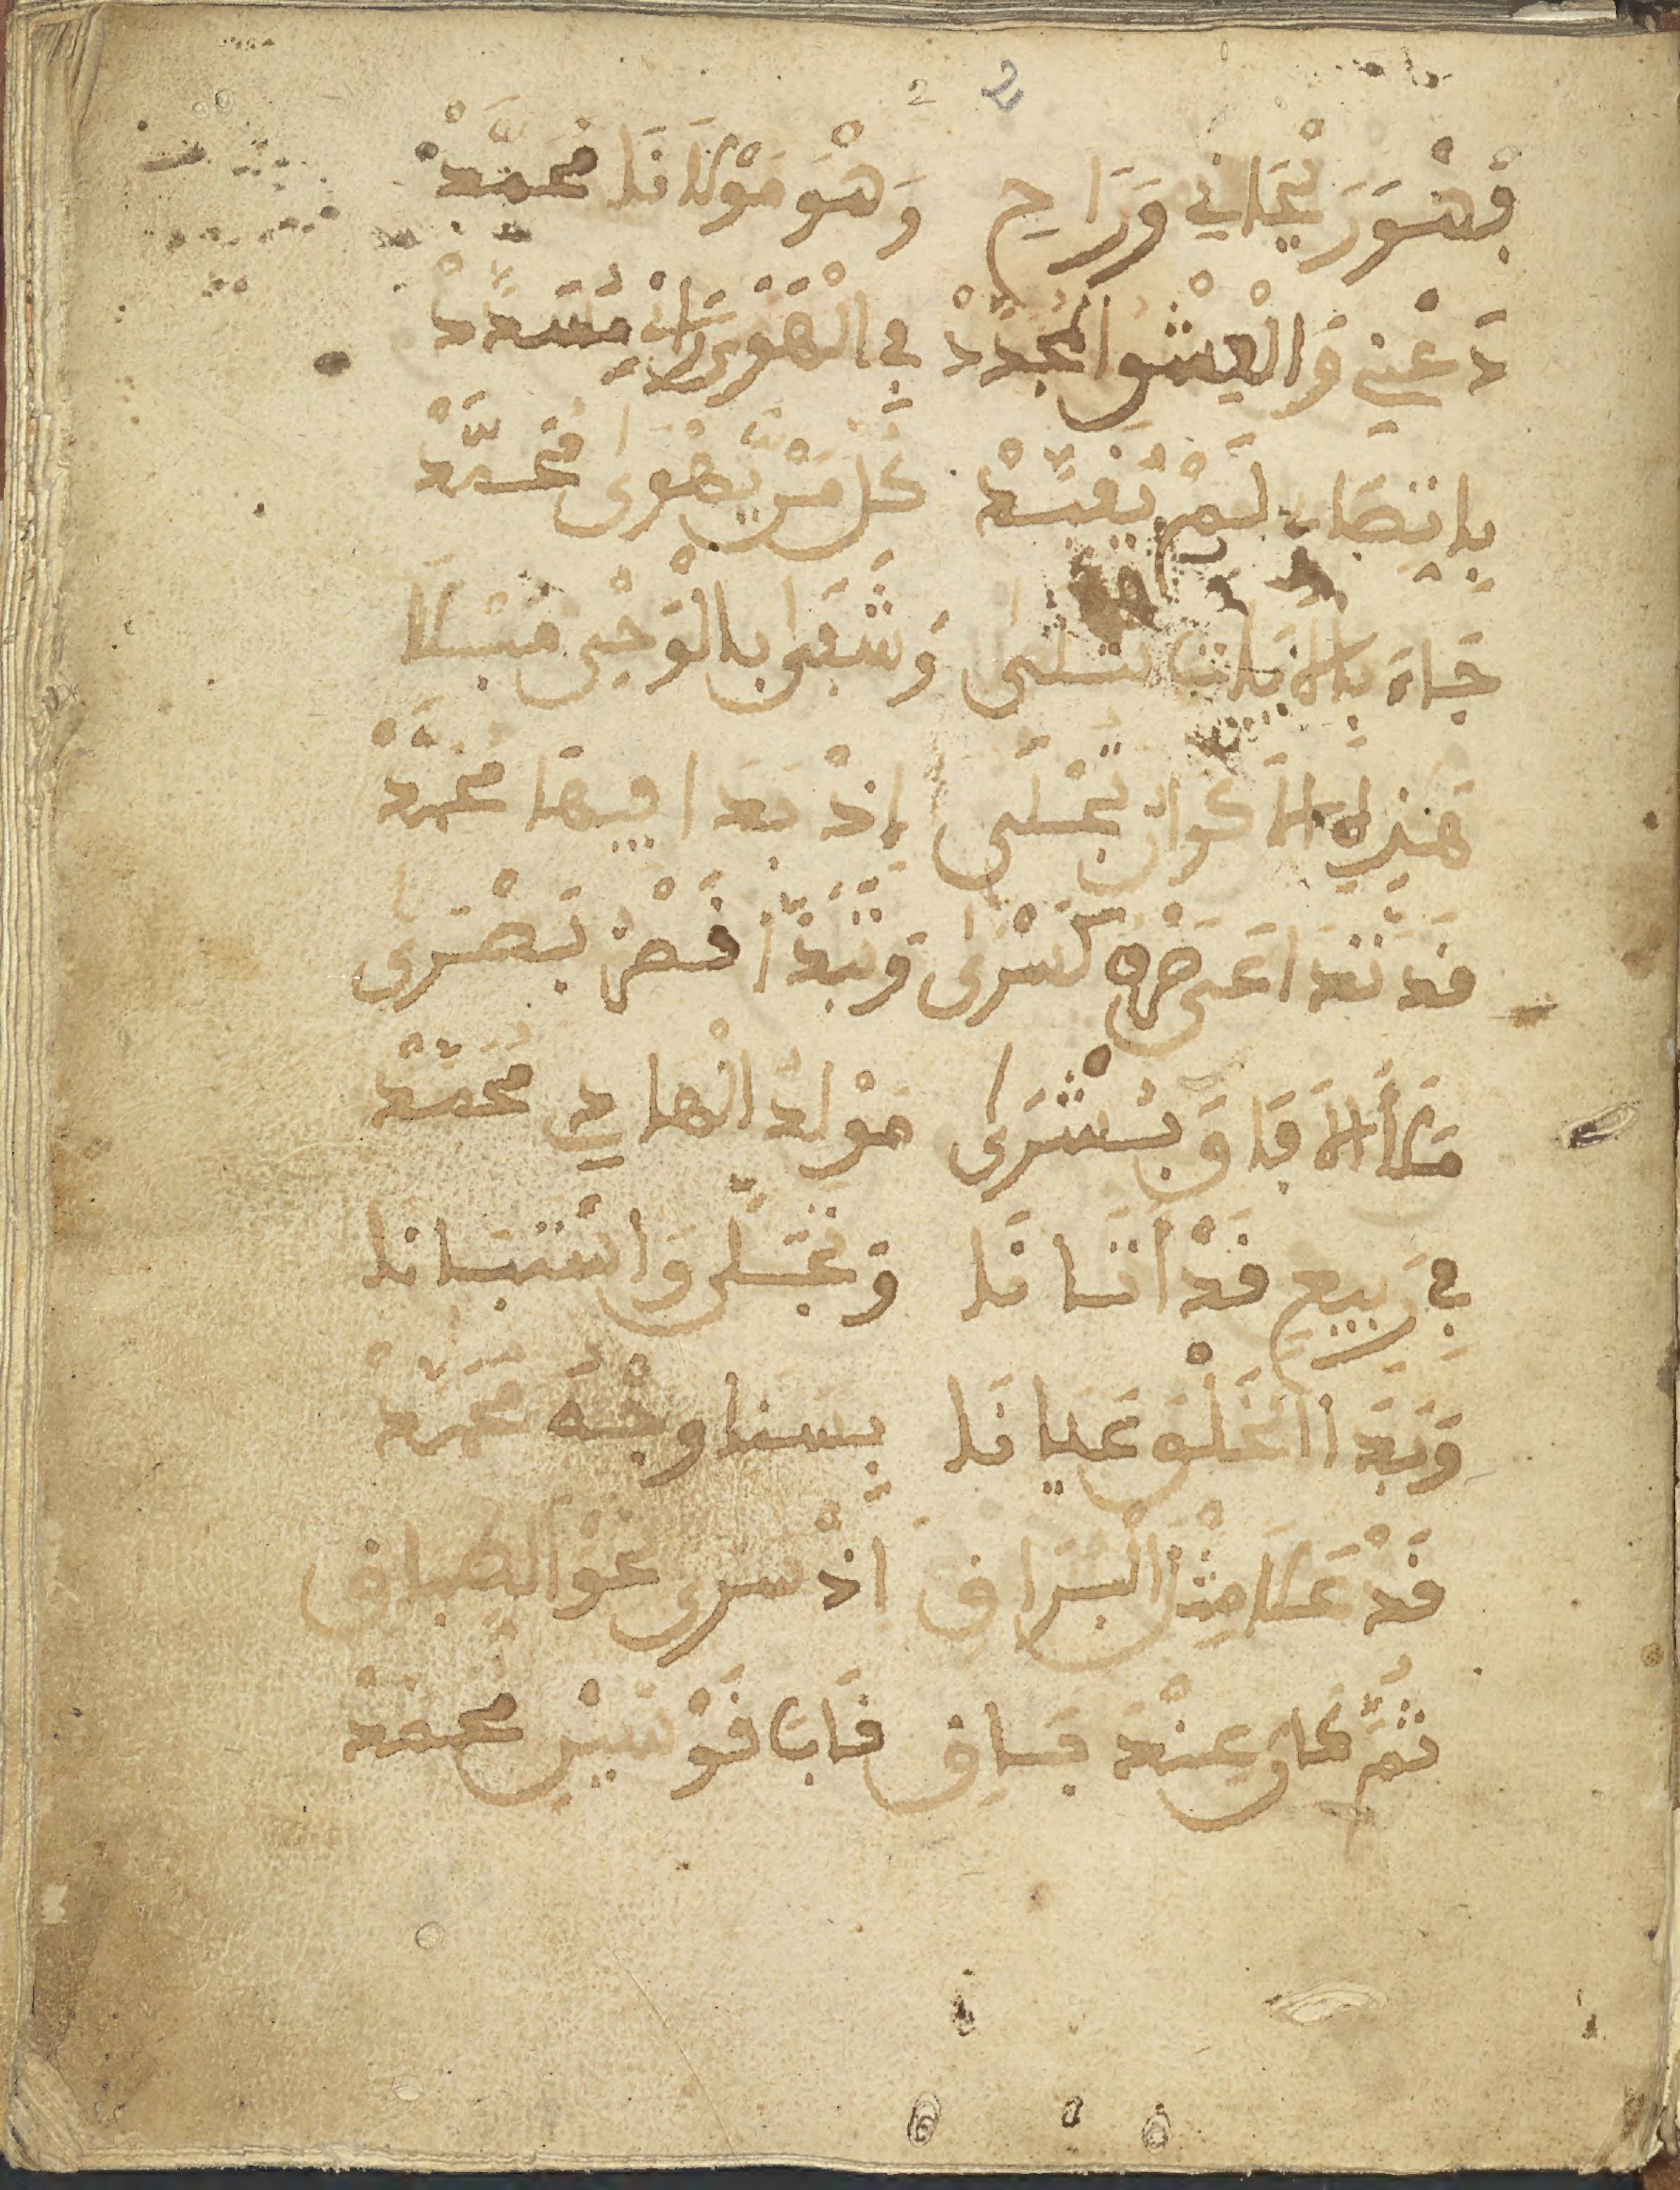 2 2
فَهْوَ رَيْحَانِي وَرَاحِ وَهْوَ مَوْلَانَا مُحَمَّدْ
دَعْنِي وَالْعِشْقُ الْمُجَدَّدْ فِي الْهَوَى مُسَدَّدْ
لَمْ يُفَنَّدْ كُلُّ مَنْ يَّهْوَى مُحَمَّدْ
جَاءَ بِالْآيَاتِ تُتْلَى وَشَفَى بِالْوَحْيِ
هَذِهِ الْأَكْوَانُ تُجْلَى إِذْ بَدَا فِيهَا مُحَمَّدْ
قَدْ كِسْرَى وَبَدَا قَصْرُ بُصْرَى
مَلَأَ الْآفَاقَ بُشْرَى مَوْلِدُ الْهَادِي مُحَمَّدْ
فِي رَبِيعٍ قَدْ أَتَانَا وَتَجَلَّى وَاسْتَبَانَا
وَبَدَا الْخَلْقِ عَيَانَا بِسَنَا وَجْهِ مُحَمَّدْ
قَدْ عَلَا مَتْنَ الْبُرَاقِ إِذْ سَرَى نَحْوَ الطِّبَاقِ
ثُمَّ كَانَ عِنْدَ قَابَ قَوْسَيْنِ مُحَمَّدْ